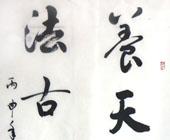 養天
法古
丙申年